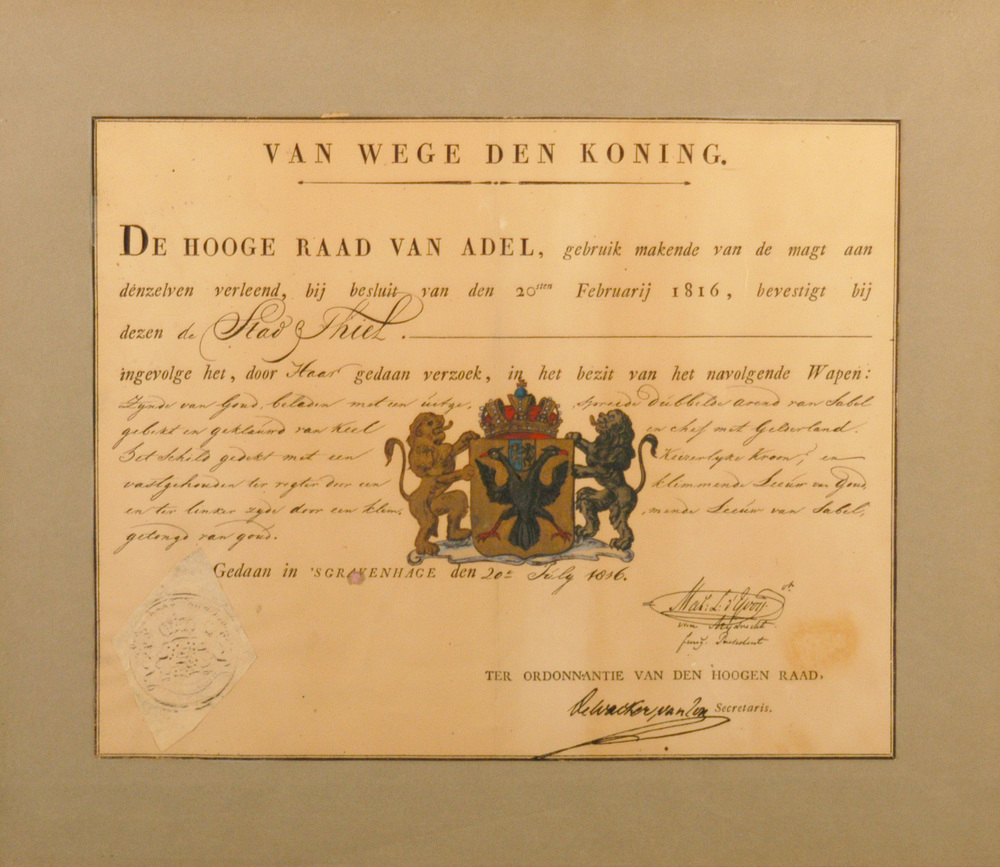 VAN WEGE DEN KONING.
DE HOOGE RAAD VAN ADEL, gebruik makende van de magt aan
dénzelven verleend, bij besluit van den 20sten Februarij 1816, bevestigt bij
dezen de Stad Thiel.
ingevolge het, door Haar gedaan verzoek, in het bezit van het navolgende Wapen:
Zynde van Goud, beladen met een uitge, spreide dubbelde arend van Sabel
gebekt en geklaauwd van Keel en chef met Gelderland.
Het Schild gedekt met een Keizerlyke Kroon, en
vastgehouden ter regter door een klimmende Leeuw van Goud,
en ter linker zyde door een klim, mende Leeuw van Sabel,
getongd van goud.
Gedaan in 'SGRAVENHAGE den 20n July 1816.
van
fung. President
TER ORDONNANTIE VAN DEN HOOGEN RAAD,
Secretaris.